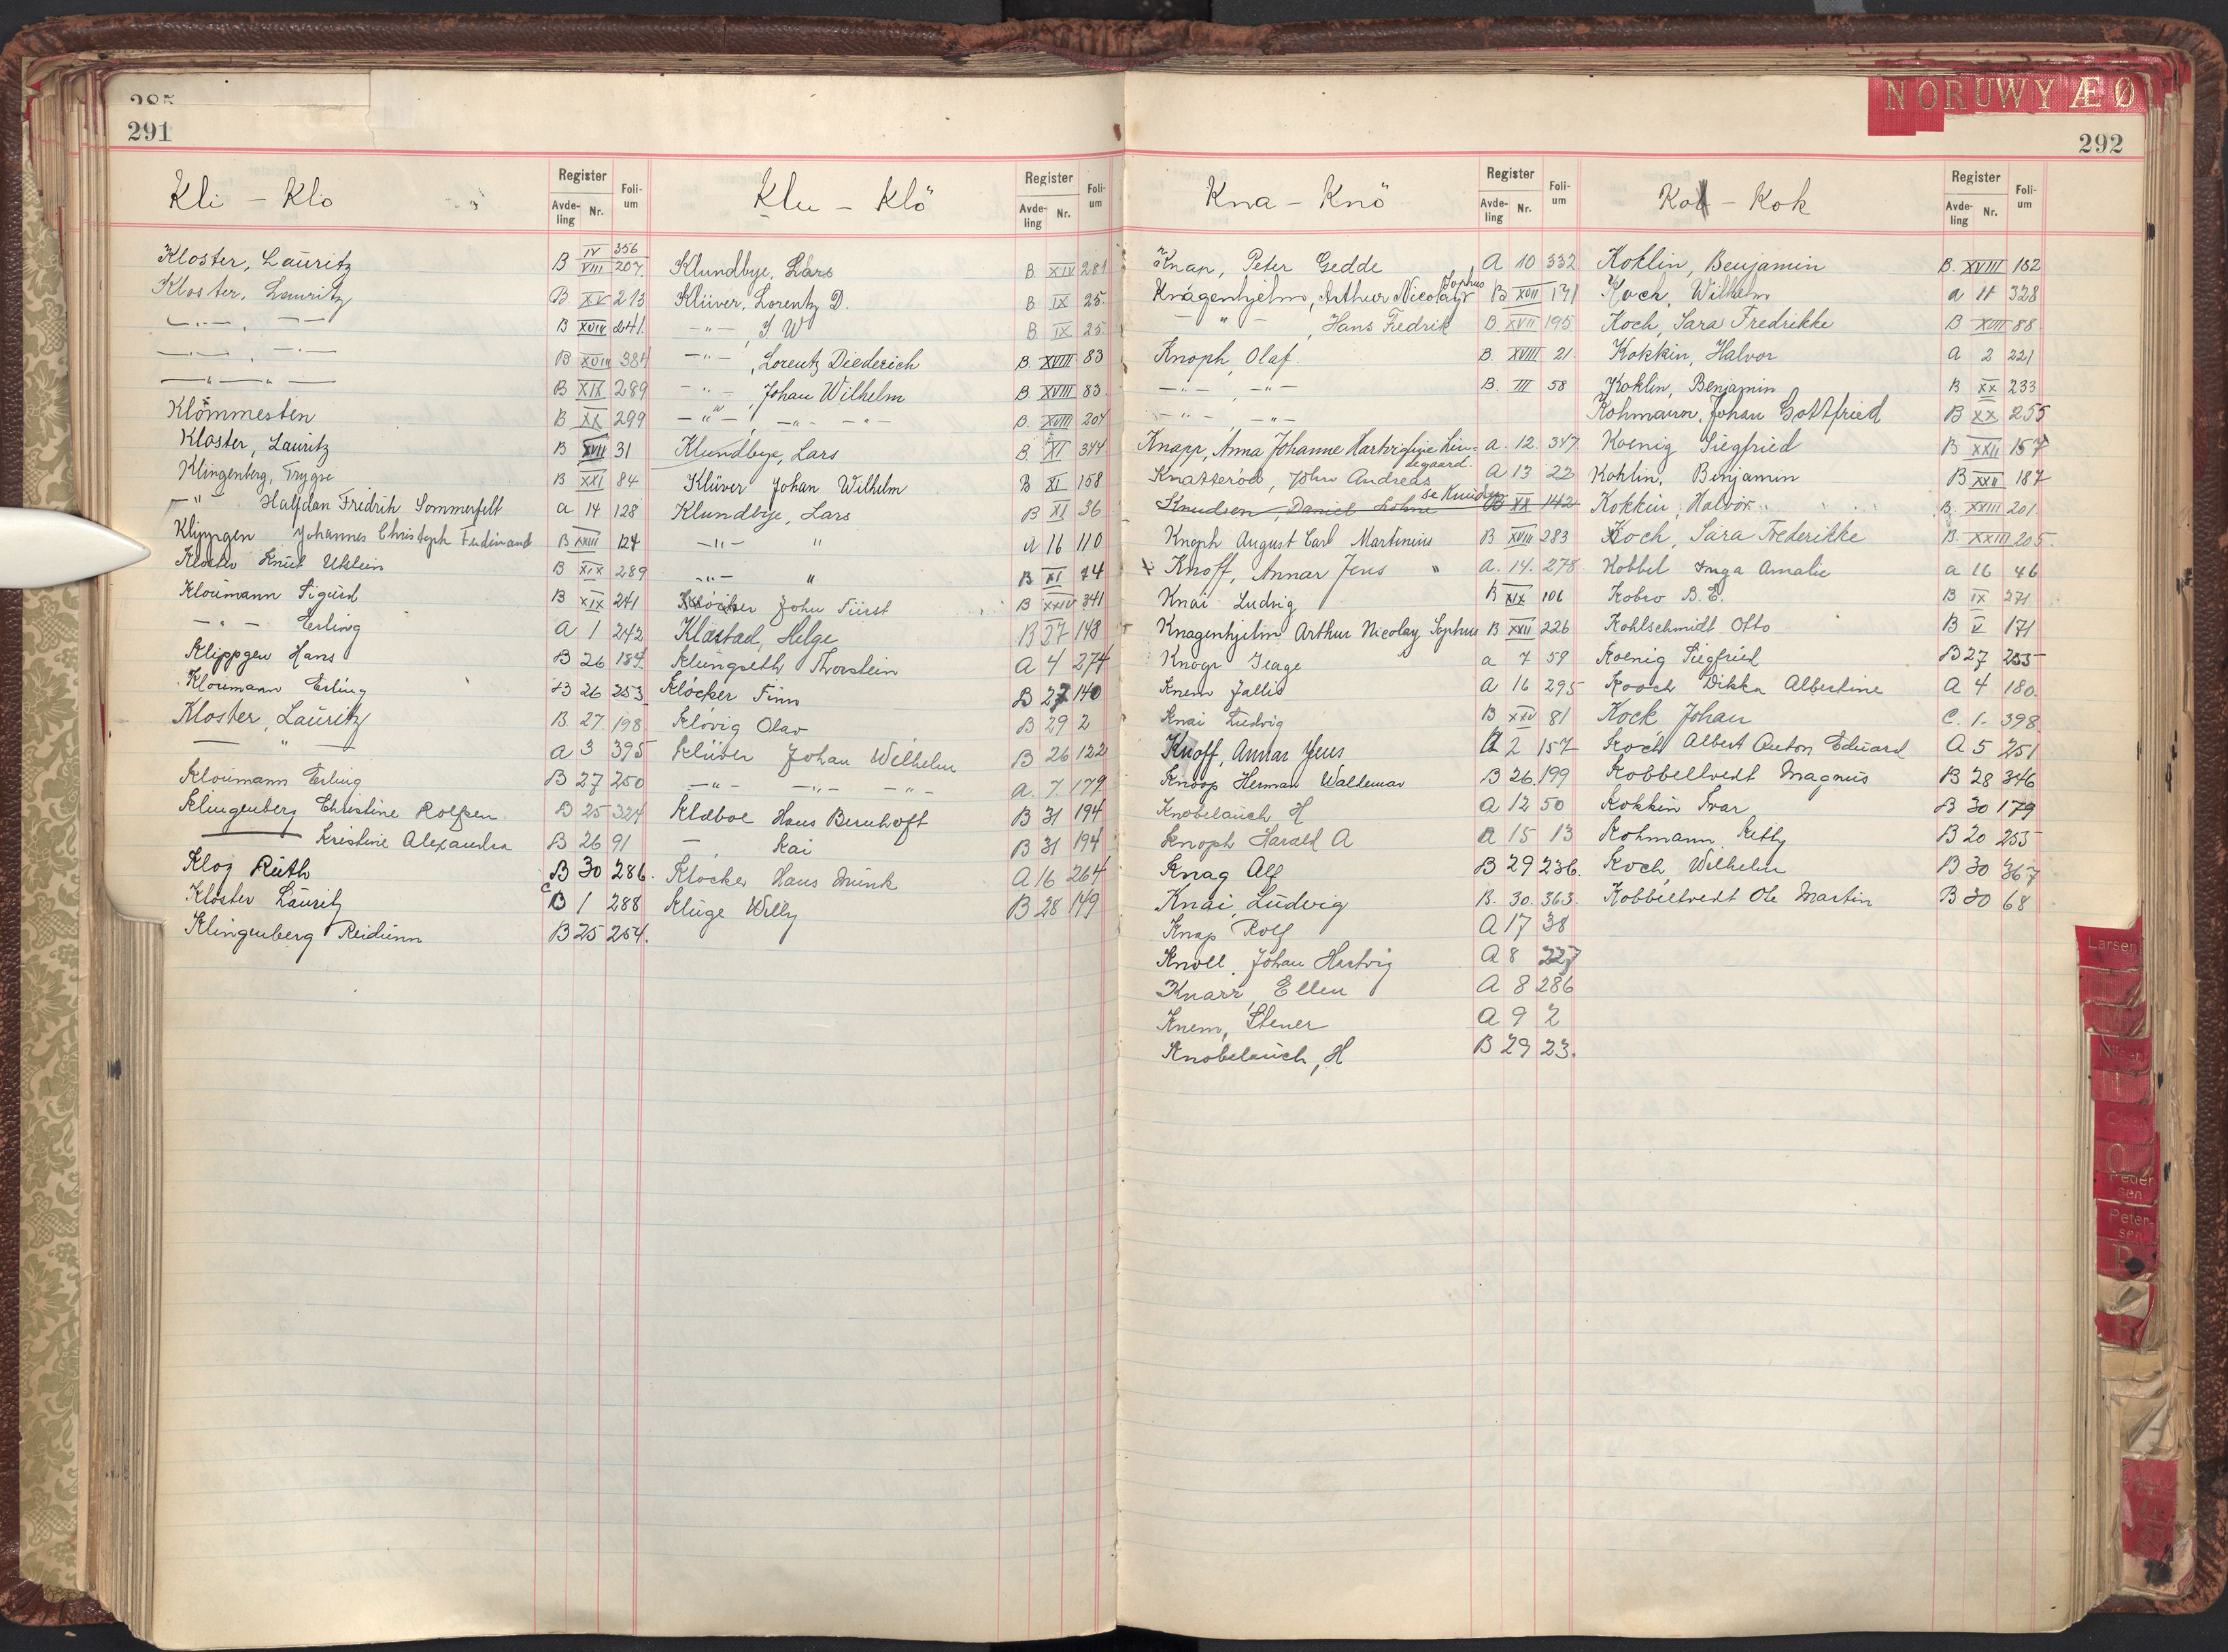 291
Kli - Klo
Register
Avde-ling
Nr.
Foli-um
Kloster, Lauritz B IV 356
VIII 207
Kloster, Lauritz B XV 213
—"— , —"— B XVIII 241
—"— , —"— B XVIII 384
—"—"— B XIX 289
Klömmesten B XX 299
Kloster, Lauritz B XVII 31
Klingenberg, Trygve B XXI 84
—"— Halfdan Fredrik Sommerfelt a 14 128
Klippgen Johannes Christoph Ferdinand B XXIII 124
Kloster Knut Utstein B XIX 289
Kloumann Sigurd B XIX 241
—"— Erling a 1 242
Klippgen Hans B 26 184
Kloumann Erling B 26 253
Kloster, Lauritz B 27 198
—"— a 3 395
Kloumann Erling B 27 250
Klingenberg Christine Rolfsen B 25 324
—— Kristine Alexandra B 26 91
Klog Ruth B 30 286.
Kloster Lauritz B 1 288
Klingenberg Reidunn B 25 254.
Klu - Klö
Register
Avde-ling
Nr.
Foli-um
Klundbye, Lars B XIV 281
Klüver, Lorentz D. B IX 25
—"— , J W B IX 25
—"— , Lorentz Diederich B. XVIII 83
—"— , Johan Wilhelm B XVIII 83
—"— , —"— —"— B. XVIII 204
Klundbye, Lars B XI 344
Klüver Johan Wilhelm B XI 158
Klundbye, Lars B XI 36
—"— " A 16 110
—"— " B XI 74
Klöcker John Fürst B XXIV 341
Klæstad, Helge B 27 148
Klungseth Thorstein A 4 274
Klöcker Finn B 27 140
Klövig Olav B 29 2
Klüver Johan Wilhelm B 26 122
—"— —"— —"— a. 7 179
Klæboe Hans Bernhoft B 31 194
— , Kai B 31 194
Klöcker Hans Munk A 16 264
Kluge Willy B 28 149
NORUWYÆØ
292
Kna - Knö
Register
Avde-ling
Nr.
Foli-um
Knap, Peter Gedde A 10 332
Knagenhjelm, Arthur Nicolay Sophus B XVII 171
—"— , Hans Fredrik B XVII 195
Knoph, Olaf. B. XVIII 21
—"— , —"— B. III 58
—"— , —"—
Knapp, Anna Johanne Hartvigine Lindegaard. a. 12. 347
Knatterød, John Andreas A 13 22
Knudsen, Daniel Lohne se Knudsen B XX 142
Knoph August Carl Martinius B XVIII 283
Knoff, Annar Jens " a. 14. 278
Knai Ludvig B XIX 106
Knagenhjelm Arthur Nicolay Sophus B XXII 226
a 7 59
Knem A 16 295
Knai Ludvig B XXV 81
Knoff, Annar Jens A 2 157
Knoop Herman Waldemar B 26 199
Knobelauch H A 12 50
Knoph Harald A A 15 13
Knag Alf B 29 236.
Knai, Ludvig B. 30. 363
Knap Rolf A 17 38
Knoll, Johan Hartvig A 8 227
Knarr, Ellen A 8 286
Knem, Stener A 9 2
Knobelauch, H B 29 23.
Kob - Kok
Register
Avde-ling
Nr.
Foli-um
Koklin, Benjamin B. XVIII 182
Koch, Wilhelm a 11 328
Koch, Sara Fredrikke B XVIII 88
Kokkin, Halvor a 2 221
Koklin, Benjamin B XX 233
Kohmann, Johan Gottfried B XX 255
Koenig Siegfried B XXII 157
Koklin, Benjamin B XXII 187
Kokkin, Halvor B. XXIII 201
Koch, Sara Frederikke B. XXIII 205.
Kobbel Inga Amalie a 16 46
Kobro B. E. B IX 271
Kohlschmidt Otto B V 171
Koenig Siegfried B 27 255
Kooch Dikka Albertine A 4 180.
Kock Johan C. 1. 398
Koch Albert Anton Eduard A 5 251
Kobbeltvedt Magnus B 28 346
Kokkin Ivar B 30 179
Kohmann Kitty B 20 255
Koch, Wilhelm B 30 367
Kobbeltvedt Ole Martin B 30 68
Larsen
Peder sen
Peter- sen